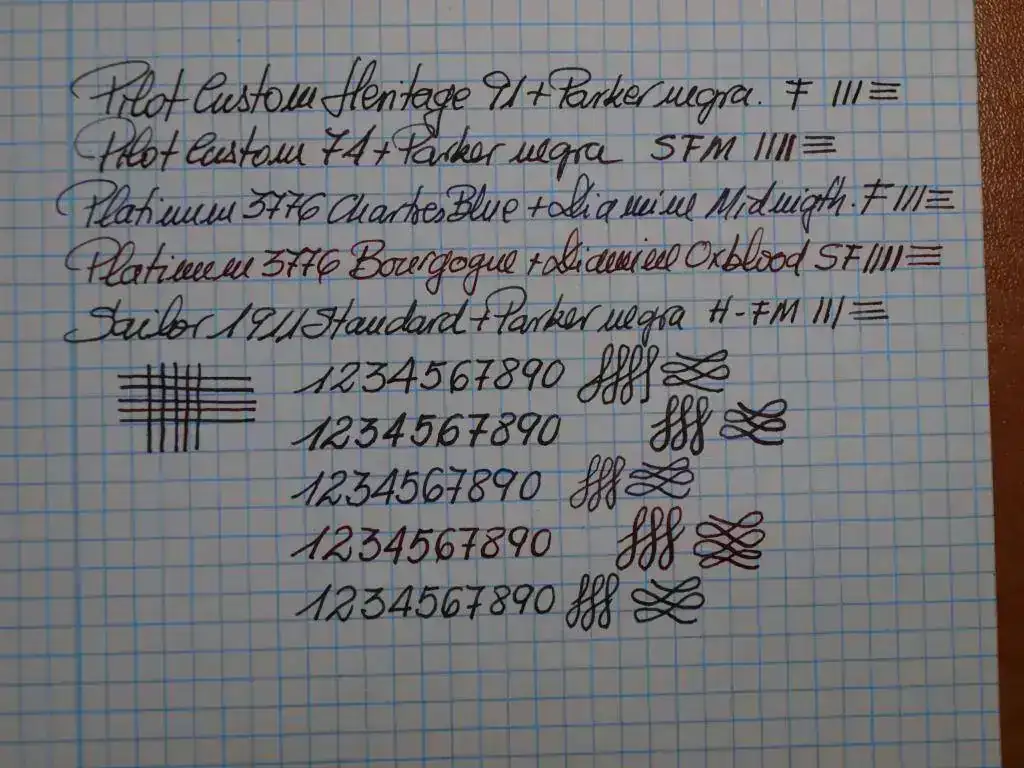 Pilot Custom Heritage 91 + Parker negra. F III≡
Pilot Custom 74 + Parker negra SFM IIII≡
Platinum 3776 Chartres Blue + Diamine Midnigth. F III≡
Platinum 3776 Bourgogne + Diamine Oxblood SF IIII≡
Sailor 1911 Standard + Parker negra H-FM III≡
1234567890
1234567890
1234567890
1234567890
1234567890